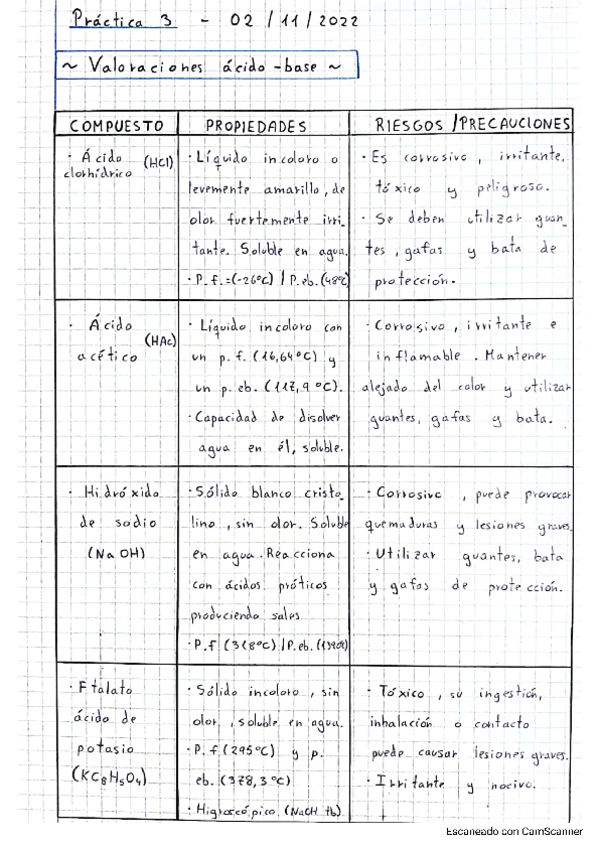 Práctica 3 - 02/11/2022
~ Valoraciones ácido-base ~
COMPUESTO
PROPIEDADES
RIESGOS/PRECAUCIONES
· Ácido (HCl)
clorhídrico
· Líquido incoloro o
levemente amarillo, de
olor fuertemente irri_
tante. Soluble en agua.
· P. f.=(-26ºC) / P.eb.(48ºC)
· Es corrosivo, irritante,
tóxico y peligroso.
· Se deben utilizar guan_
tes, gafas y bata de
protección.
· Ácido
(HAc)
acético
· Líquido incoloro con
un p. f. (16,64ºC) y
un p. eb. (117,9 ºC).
· Capacidad de disolver
agua en él, soluble.
· Corrosivo, irritante e
inflamable. Mantener
alejado del calor y utilizar
guantes, gafas y bata.
· Hidróxido
de sodio
(NaOH)
· Sólido blanco crista_
lino, sin olor. Soluble
en agua. Reacciona
con ácidos próticos
produciendo sales
· P.f (318ºC) / P.eb. (1390ºC)
· Corrosivo, puede provocar
quemaduras y lesiones graves.
· Utilizar guantes, bata
y gafas de protección.
· Ftalato
ácido de
potasio
(KC8H5O4)
· Sólido incoloro, sin
olor, soluble en agua.
· P. f. (295ºC) y p.
eb. (378,3ºC)
· Higroscópico. (NaOH tb)
· Tóxico, su ingestión,
inhalación o contacto
puede causar lesiones graves.
· Irritante y nocivo.
Escaneado con CamScanner